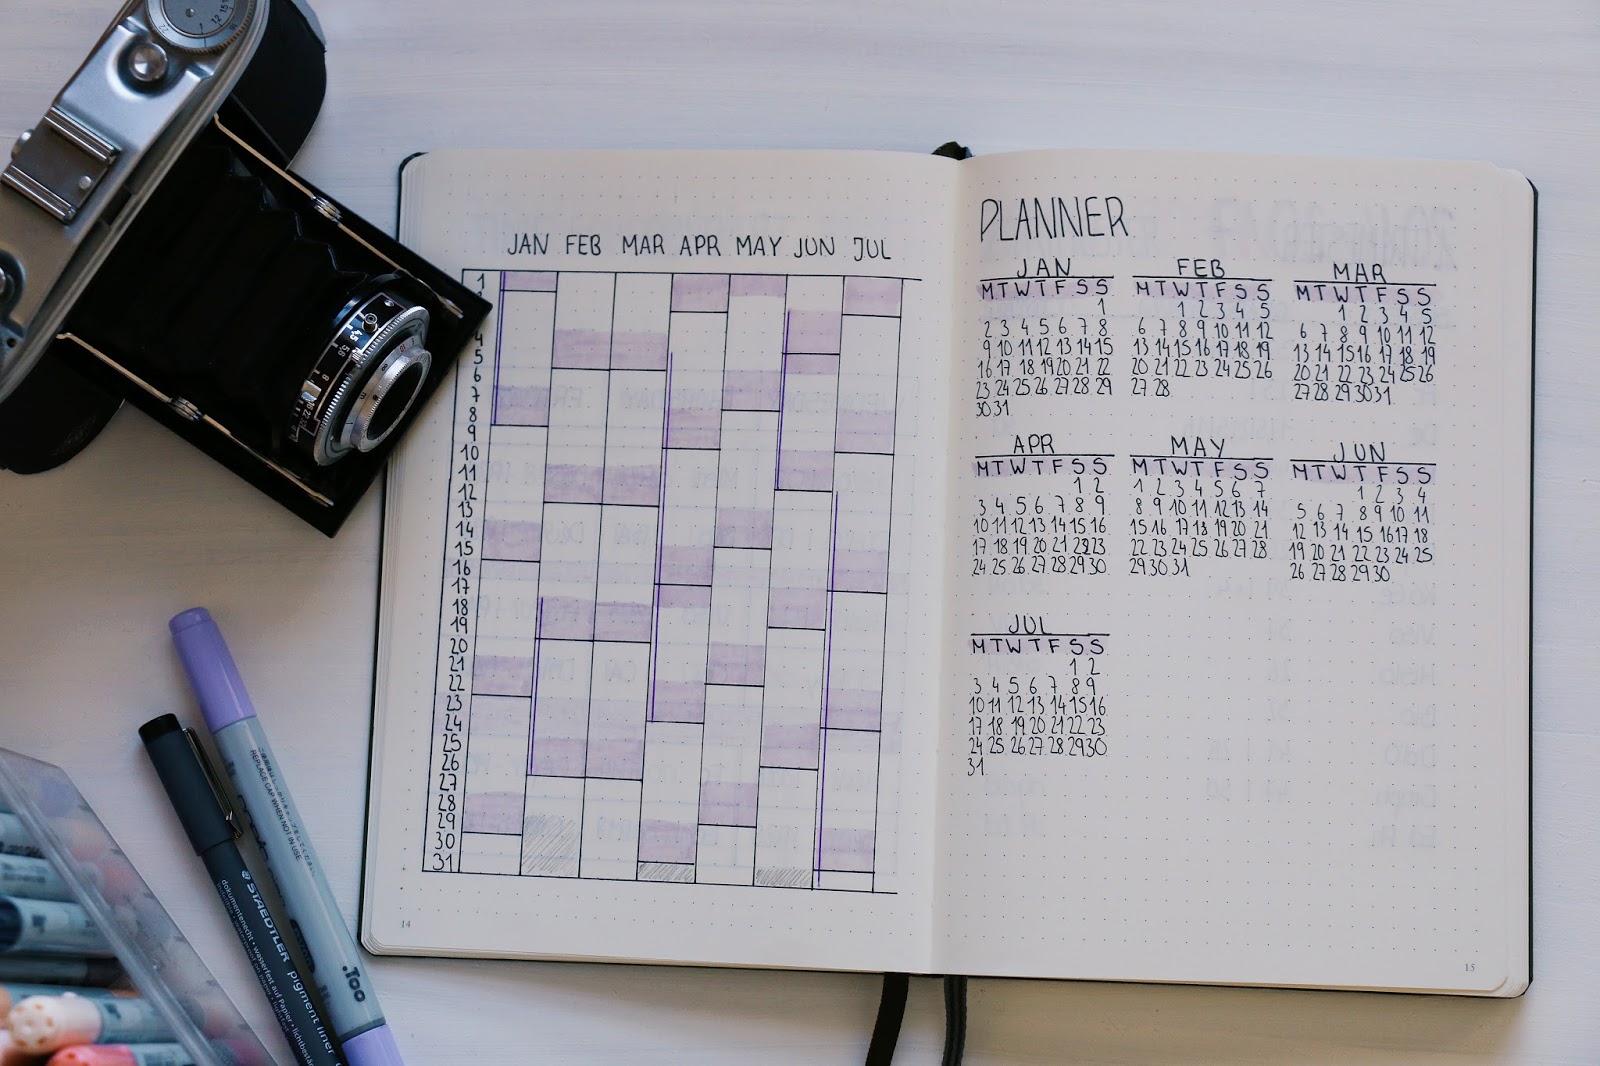 JAN FEB MAR APR MAY JUN JUL
1
4
5
6
7
8
9
10
11
12
13
14
15
16
17
18
19
20
21
22
23
24
25
26
27
28
29
30
31
14
PLANNER
JAN
M T W T F S S
1
2 3 4 5 6 7 8
9 10 11 12 13 14 15
16 17 18 19 20 21 22
23 24 25 26 27 28 29
30 31
FEB
M T W T F S S
1 2 3 4 5
6 7 8 9 10 11 12
13 14 15 16 17 18 19
20 21 22 23 24 25 26
27 28
MAR
M T W T F S S
1 2 3 4 5
6 7 8 9 10 11 12
13 14 15 16 17 18 19
20 21 22 23 24 25 26
27 28 29 30 31
APR
M T W T F S S
1 2
3 4 5 6 7 8 9
10 11 12 13 14 15 16
17 18 19 20 21 22 23
24 25 26 27 28 29 30
MAY
M T W T F S S
1 2 3 4 5 6 7
8 9 10 11 12 13 14
15 16 17 18 19 20 21
22 23 24 25 26 27 28
29 30 31
JUN
M T W T F S S
1 2 3 4
5 6 7 8 9 10 11
12 13 14 15 16 17 18
19 20 21 22 23 24 25
26 27 28 29 30
JUL
M T W T F S S
1 2
3 4 5 6 7 8 9
10 11 12 13 14 15 16
17 18 19 20 21 22 23
24 25 26 27 28 29 30
31
15
REPLACE CAP WHEN NOT IN USE
.Too
STAEDTLER pigment liner
dokumentenecht • wasserfest auf Papier • lichtbestä